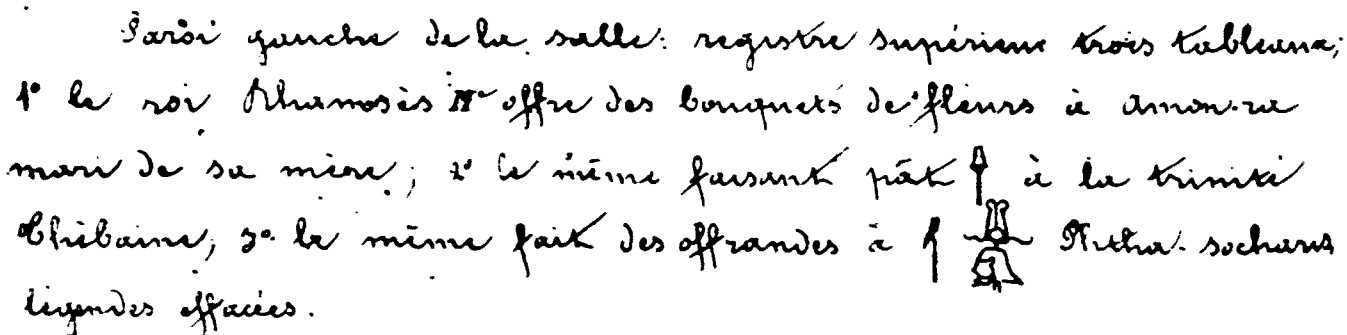 Paroi gauche de la salle: registre supérieur trois tableaux;
1° le roi Rhamsès IIe offre des bouquets de fleurs à amon-ra
mari de sa mère; 2° le même faisant pât à la trinité
Thébaine; 3° le même fait des offrandes à Phtha-socharis
légendes effacées.